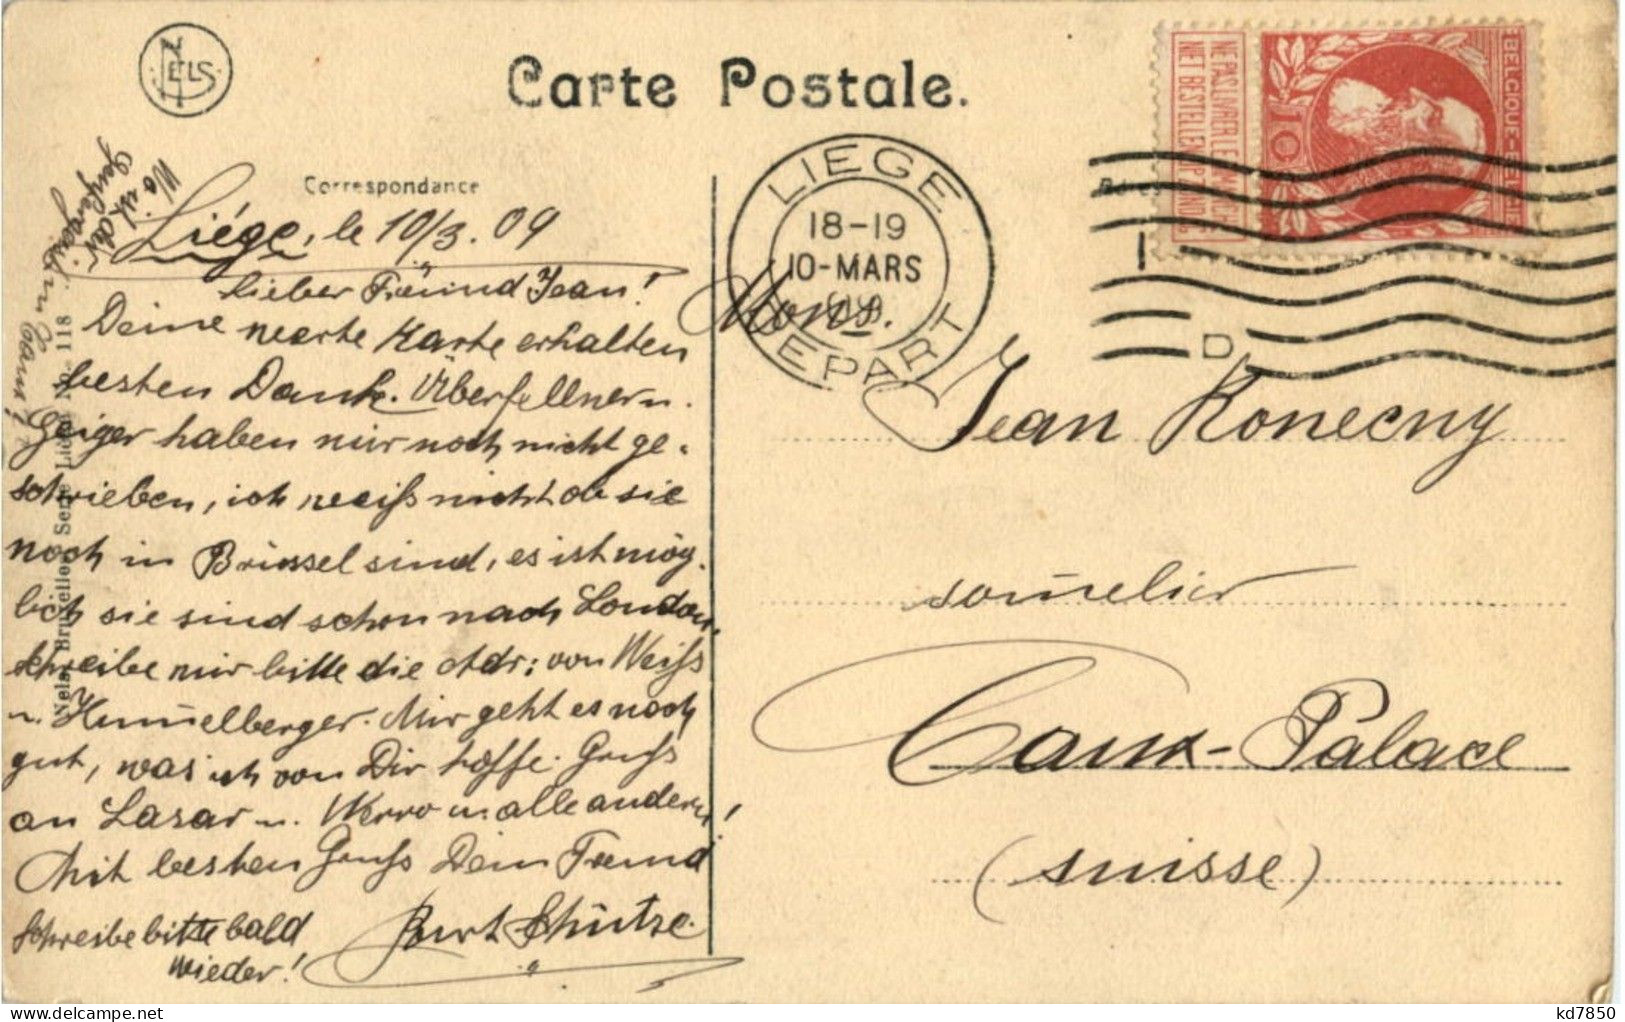 NELS
Carte Postale.
NE PAS LIVRER LE DIMANCHE
NET BESTELLEN OP ZONDAG
BELGIQUE-BELGIË
10
Correspondance
LIEGE
18-19
10-MARS
09
DEPART
1
D
Wo ist der
in Caux?
Liége, le 10/3. 09
Lieber Freund Jean!
Deine werte Karte erhalten
besten Dank. Überfellner u.
Geiger haben mir noch nicht ge-
schrieben, ich weiß nicht ob sie
noch in Brüssel sind, es ist mög-
lich sie sind schon nach London,
schreibe mir bitte die Adr: von Weiß
u. Hum̅elberger. Mir geht es noch
gut, was ich von Dir hoffe. Gruß
an Lasar u. Werro u. alle andern!
Mit besten Gruß Dein Freund
Kurt Schütze.
Schreibe bitte bald
wieder!
Nels, Bruxelles Serie Liège No. 118
Mons.
Jean Konecny
som̅elier
Caux-Palace
(suisse)
kd7850